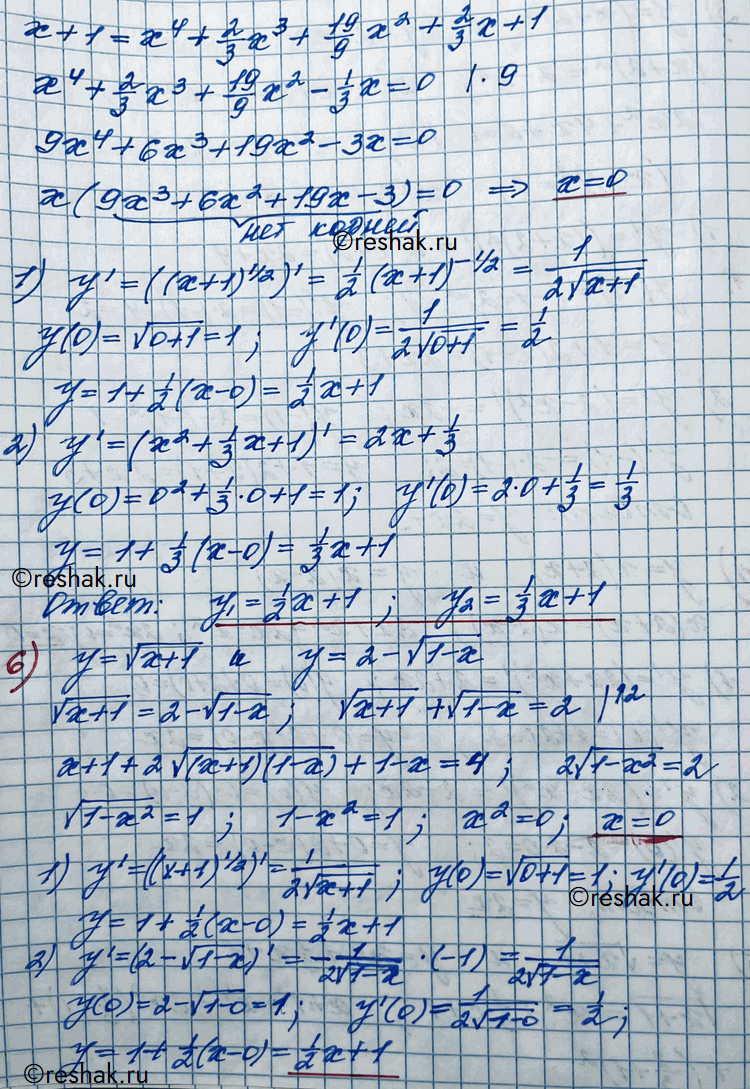 x+1=x⁴+2/3x³+19/9x²+2/3x+1
x⁴+2/3x³+19/9x²-1/3x=0 |·9
9x⁴+6x³+19x²-3x=0
x(9x³+6x²+19x-3)=0 ⇒ x=0
нет корней
©reshak.ru
1) y'=((x+1)^1/2)'=1/2(x+1)^-1/2=1/(2√(x+1))
y(0)=√(0+1)=1; y'(0)=1/(2√(0+1))=1/2
y=1+1/2(x-0)=1/2x+1
2) y'=(x²+1/3x+1)'=2x+1/3
y(0)=0²+1/3·0+1=1; y'(0)=2·0+1/3=1/3
y=1+1/3(x-0)=1/3x+1
©reshak.ru
Ответ: y₁=1/2x+1; y₂=1/3x+1
б) y=√(x+1) и y=2-√(1-x)
√(x+1)=2-√(1-x); √(x+1)+√(1-x)=2 |↑2
x+1+2√((x+1)(1-x))+1-x=4; 2√(1-x²)=2
√(1-x²)=1; 1-x²=1; x²=0; x=0
1) y'=((x+1)^1/2)'=1/(2√(x+1)); y(0)=√(0+1)=1; y'(0)=1/2
©reshak.ru
y=1+1/2(x-0)=1/2x+1
2) y'=(2-√(1-x))'=-1/(2√(1-x))·(-1)=1/(2√(1-x))
y(0)=2-√(1-0)=1; y'(0)=1/(2√(1-0))=1/2;
y=1+1/2(x-0)=1/2x+1
©reshak.ru